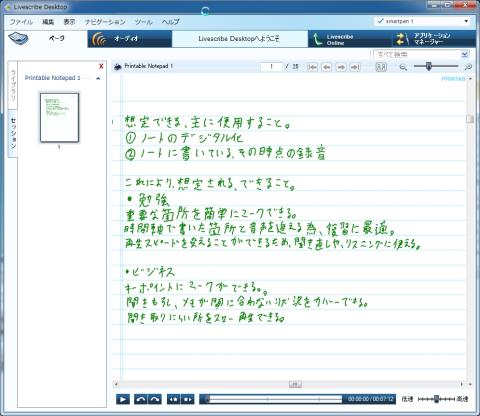 Livescribe Desktop
ファイル 編集 表示 ナビゲーション ツール ヘルプ
smartpen 1
ページ オーディオ Livescribe Desktopへようこそ Livescribe Online アプリケーション マネージャー
すべて検索
Printable Notepad 1
Printable Notepad 1
1 / 25
ライブラリ
セッション
1
PRINTAB
想定できる、主に使用すること。
① ノートのデジタル化
② ノートに書いている、その時点の録音
これにより、想定される、できること。
・勉強
重要な箇所を簡単にマークできる。
時間軸で書いた箇所と音声を追える為、復習に最適。
再生スピードを変えることができるため、聞き直しや、リスニングに使える。
・ビジネス
キーポイントにマークができる。
聞きもらし、メモが間に合わない状況をカバーできる。
聞き取りにくい所をスロー再生できる。
00:00:00 / 00:07:12
低速 高速